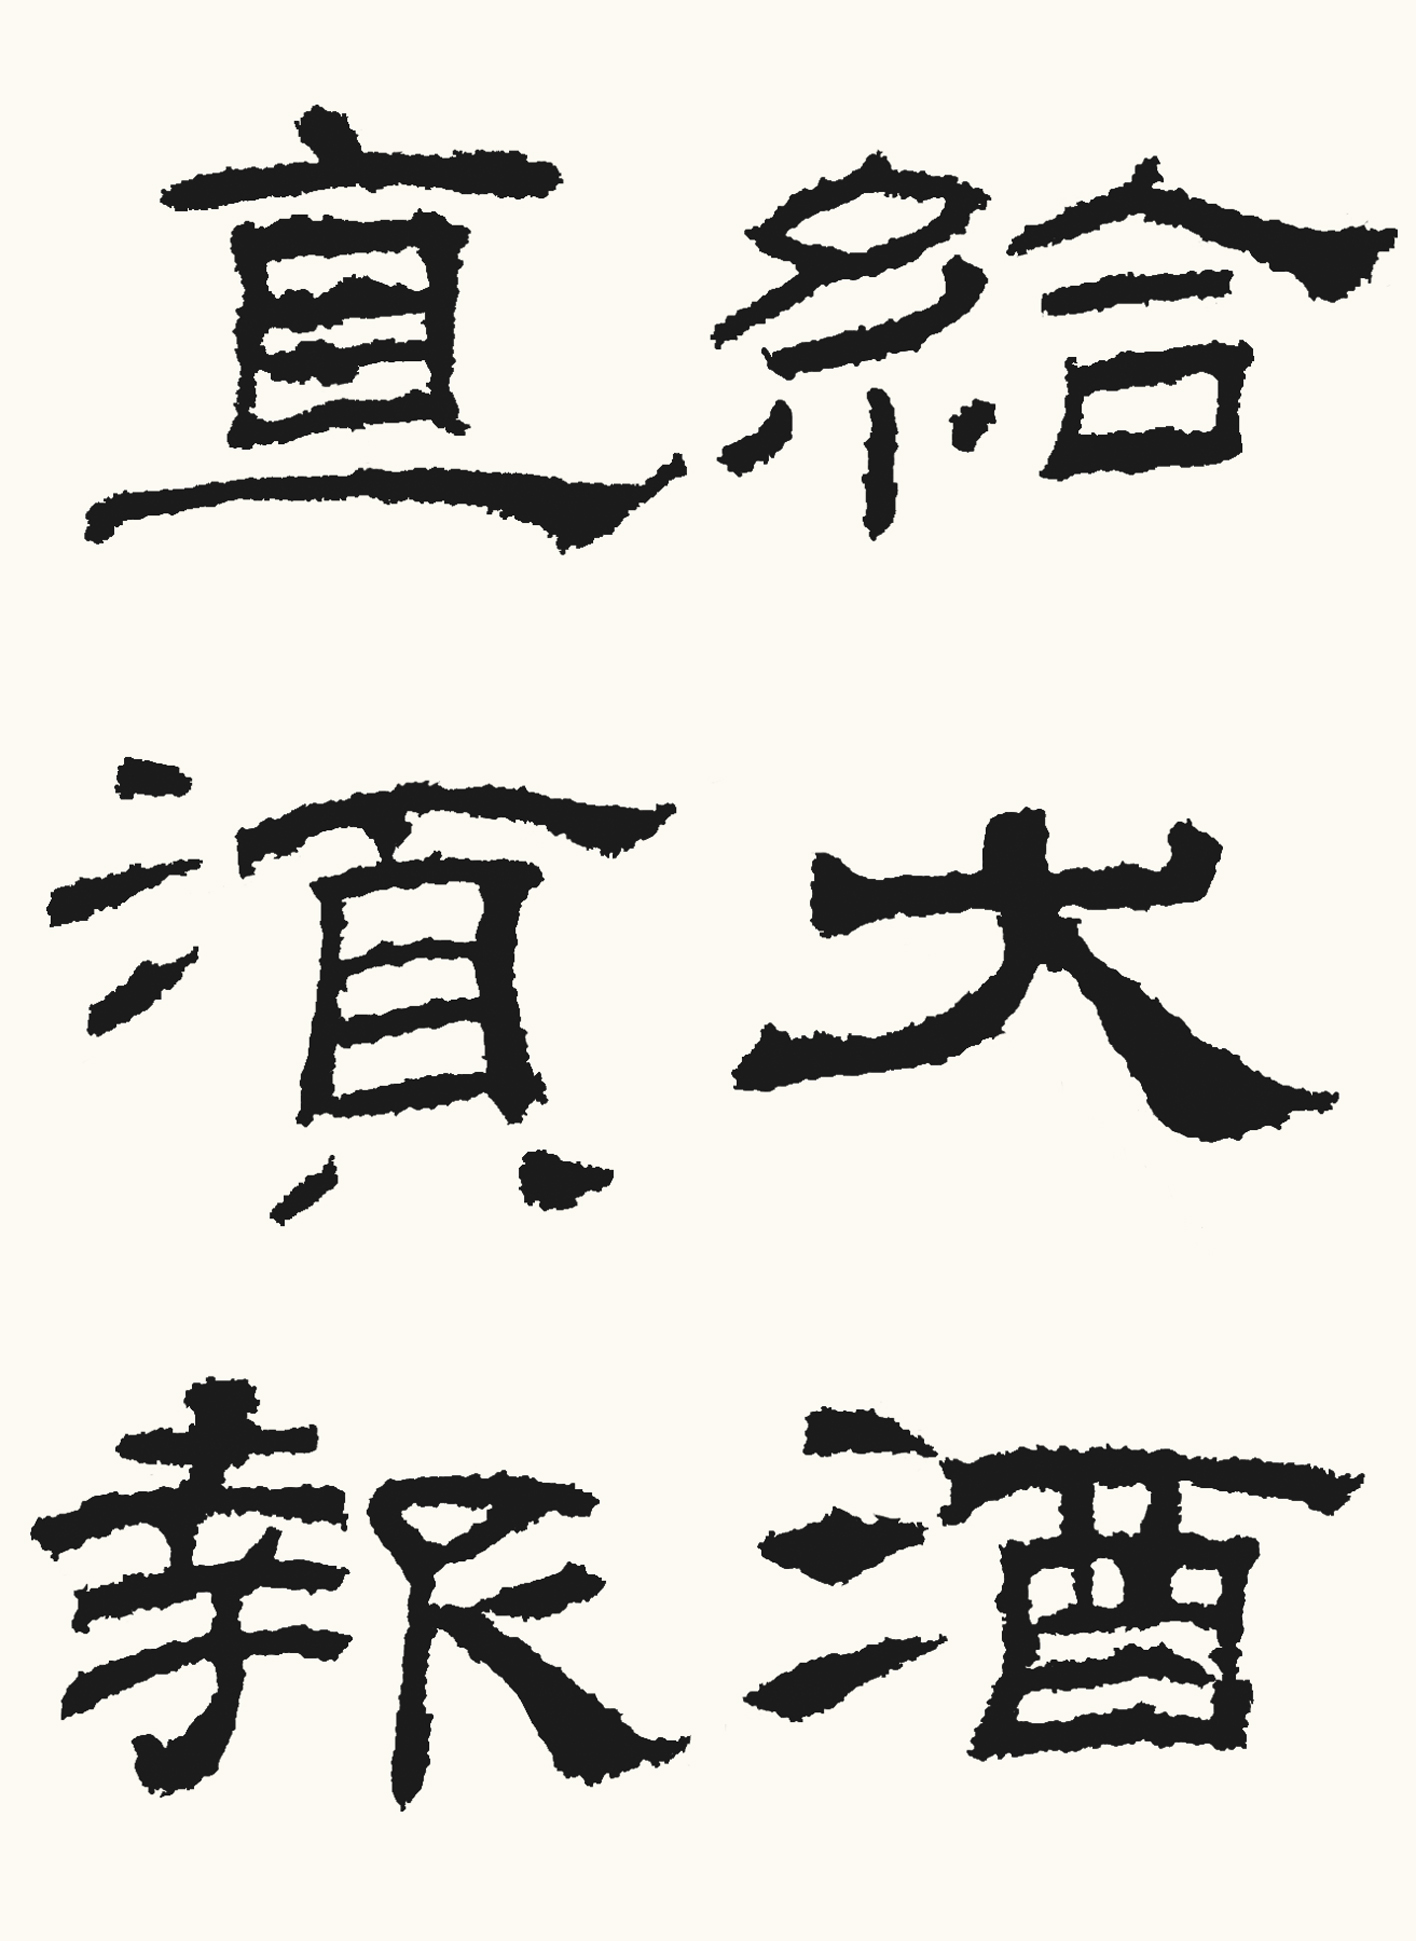 給大酒
直湏報